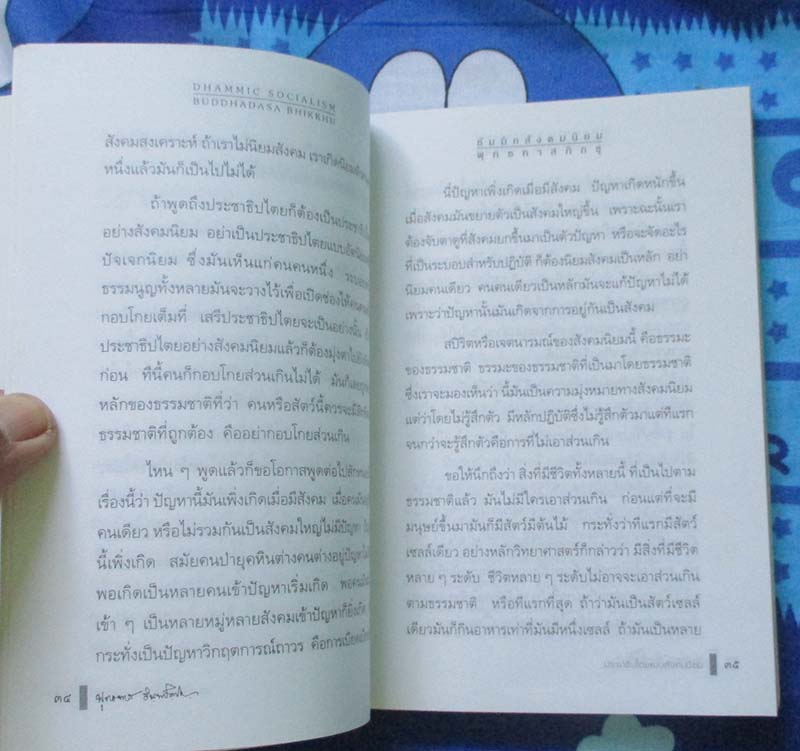 DHAMMIC SOCIALISM
BUDDHADASA BHIKKHU
สังคมสงเคราะห์ ถ้าเราไม่นิยมสังคม เราเกิดนิยม
หนึ่งแล้วมันก็เป็นไปไม่ได้
ถ้าพูดถึงประชาธิปไตยก็ต้องเป็น
อย่างสังคมนิยม อย่าเป็นประชาธิปไตยแบบ
ปัจเจกนิยม ซึ่งมันเห็นแก่คนคนหนึ่ง
ธรรมนูญทั้งหลายมันจะวางไว้เพื่อเปิดช่องให้
กอบโกยเต็มที่ เสรีประชาธิปไตยจะเป็นอย่างนั้น
ประชาธิปไตยอย่างสังคมนิยมแล้วก็ต้องมุ่ง
ก่อน ทีนี้คนก็กอบโกยส่วนเกินไม่ได้
หลักของธรรมชาติที่ว่า คนหรือสัตว์นี้ควรจะมี
ธรรมชาติที่ถูกต้อง คืออย่ากอบโกยส่วนเกิน
ไหน ๆ พูดแล้วก็ขอโอกาสพูดต่อไป
เรื่องนี้ว่า ปัญหานี้มันเพิ่งเกิดเมื่อมีสังคม
คนเดียว หรือไม่รวมกันเป็นสังคมใหญ่ไม่มีปัญหา
นี้เพิ่งเกิด สมัยคนป่ายุคหินต่างคนต่างอยู่
พอเกิดเป็นหลายคนเข้าปัญหาเริ่มเกิด
เข้า ๆ เป็นหลายหมู่หลายสังคมเข้าปัญหาก็
กระทั่งเป็นปัญหาวิกฤตการณ์ถาวร
๓๔
ธัมมิกสังคมนิยม
พุทธทาสภิกขุ
นี่ปัญหาเพิ่งเกิดเมื่อมีสังคม ปัญหาเกิดหนักขึ้น
เมื่อสังคมมันขยายตัวเป็นสังคมใหญ่ขึ้น เพราะฉะนั้นเรา
ต้องจับตาดูที่สังคมยกขึ้นมาเป็นตัวปัญหา หรือจะจัดอะไร
ที่เป็นระบอบสำหรับปฏิบัติ ก็ต้องนิยมสังคมเป็นหลัก อย่า
นิยมคนเดียว คนคนเดียวเป็นหลักมันจะแก้ปัญหาไม่ได้
เพราะว่าปัญหานั้นมันเกิดจากการอยู่กันเป็นสังคม
สปิริตหรือเจตนารมณ์ของสังคมนิยมนี้ คือธรรมะ
ของธรรมชาติ ธรรมะของธรรมชาติที่เป็นมาโดยธรรมชาติ
ซึ่งเราจะมองเห็นว่า นี้มันเป็นความมุ่งหมายทางสังคมนิยม
แต่ว่าโดยไม่รู้สึกตัว มีหลักปฏิบัติซึ่งไม่รู้สึกตัวมาแต่ทีแรก
จนกว่าจะรู้สึกตัวคือการที่ไม่เอาส่วนเกิน
ขอให้นึกถึงว่า สิ่งที่มีชีวิตทั้งหลายนี้ ที่เป็นไปตาม
ธรรมชาติแล้ว มันไม่มีใครเอาส่วนเกิน ก่อนแต่ที่จะมี
มนุษย์ขึ้นมามันก็มีสัตว์มีต้นไม้ กระทั่งว่าทีแรกมีสัตว์
เซลล์เดียว อย่างหลักวิทยาศาสตร์ก็กล่าวว่า มีสิ่งที่มีชีวิต
หลาย ๆ ระดับ ชีวิตหลาย ๆ ระดับไม่อาจจะเอาส่วนเกิน
ตามธรรมชาติ หรือทีแรกที่สุด ถ้าว่ามันเป็นสัตว์เซลล์
เดียวมันก็กินอาหารเท่าที่มันมีหนึ่งเซลล์ ถ้ามันเป็นหลาย
ประชาธิปไตยแบบสังคมนิยม ๓๕